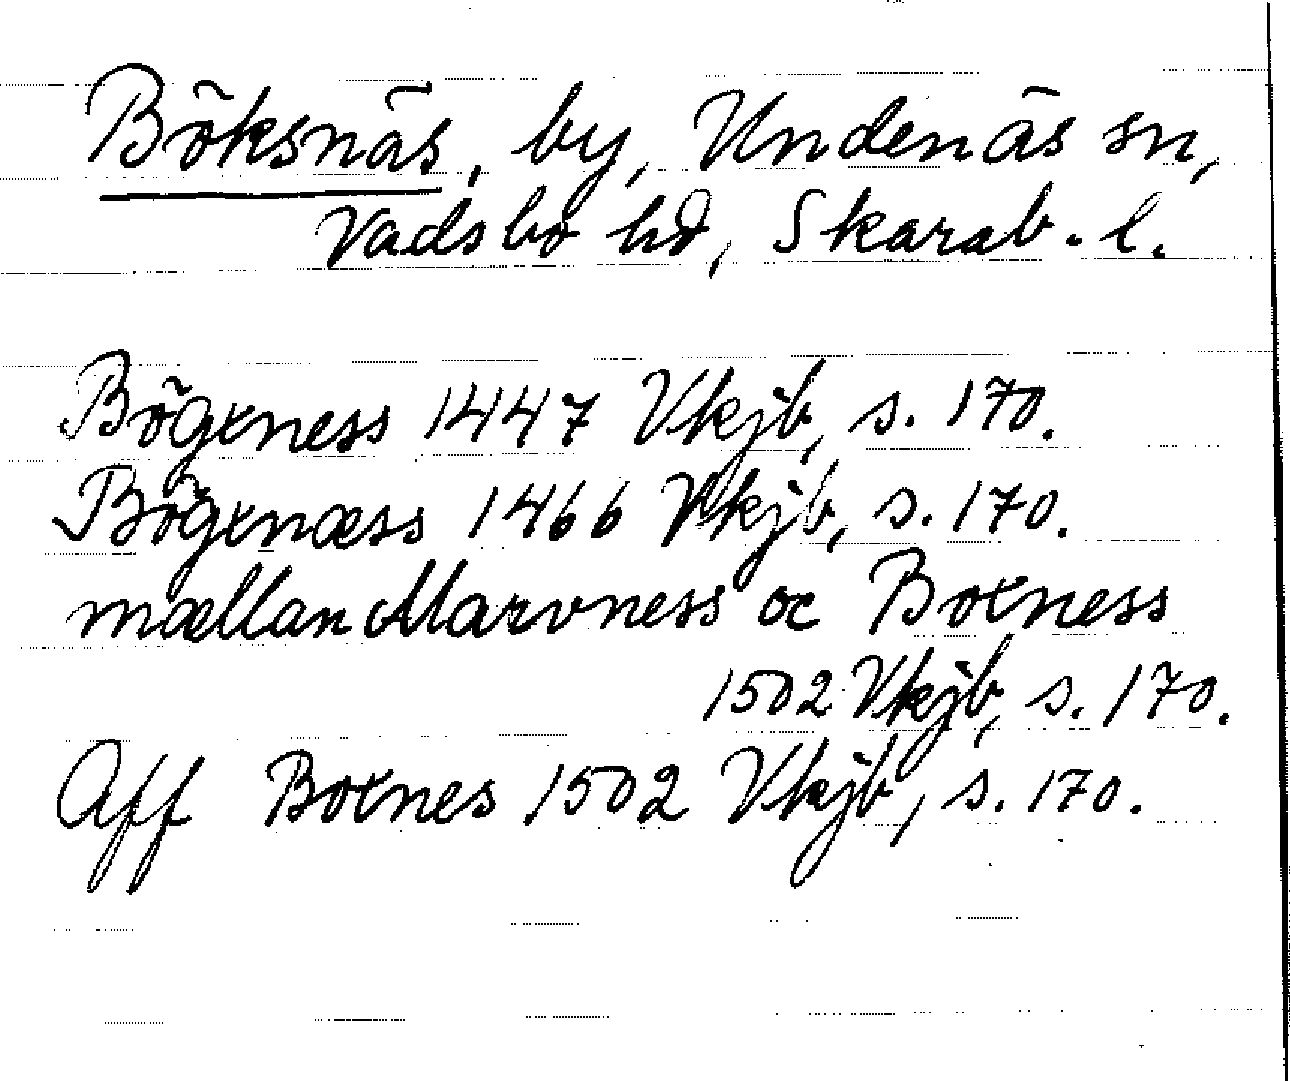 Böksnäs, by, Undenäs sn,
Vadsbo hd, Skarab. l.
Bögxness 1447 Vkjb, s. 170.
Bögxnæss 1466 Vkjb, s. 170.
mællan Marvness oc Boxness
1502 Vkjb, s. 170.
Aff Boxnes 1502 Vkjb, s. 170.